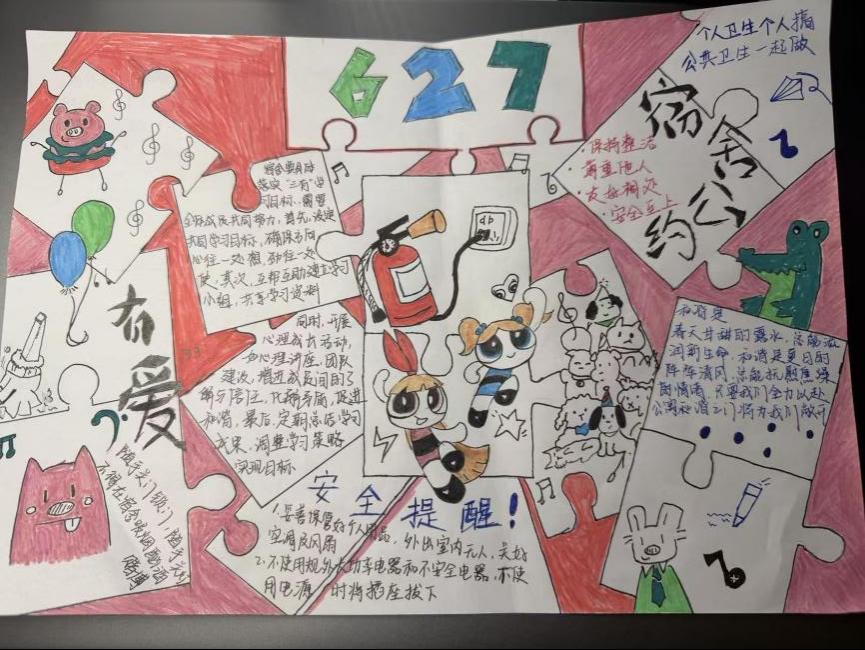 627
个人卫生个人搞
公共卫生一起做
宿舍公约
·保持整洁
·尊重他人
·友好相处
·安全至上
宿舍要真正
落实"三有"学
习目标,需要
全体成员共同努力,首先,设定
共同学习目标,确保方向
心往一处想,劲往一处
使,其次,互帮互助建立学习
小组,共享学习资料
同时,开展
心理成长活动,
如心理讲座、团队
建设,增进成员间的了
解与信任,
和谐,最后,定期总结学习
成果,调整学习策略
实现目标
有爱
和谐是
春天甘甜的露水,总能滋
润新生命,和谐是夏日的
阵阵清风,总能抚慰焦燥
的情绪,只要我们全力以赴
公寓和谐之门将为我们敞开
随手关门锁门,随手关灯
不得在宿舍吸烟酗酒
赌博
安全提醒!
1.妥善保管好个人用品,外出室内无人,关好
空调及风扇
2.不使用规外大功率电器和不安全电器,不使
用电源时将插座拔下